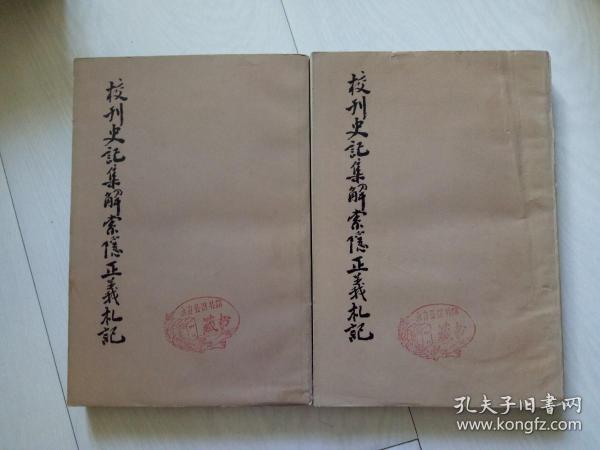 校刊史記集解索隱正義札記
校刊史記集解索隱正義札記
藏书
藏书
孔夫子旧书网
www.kongfz.com